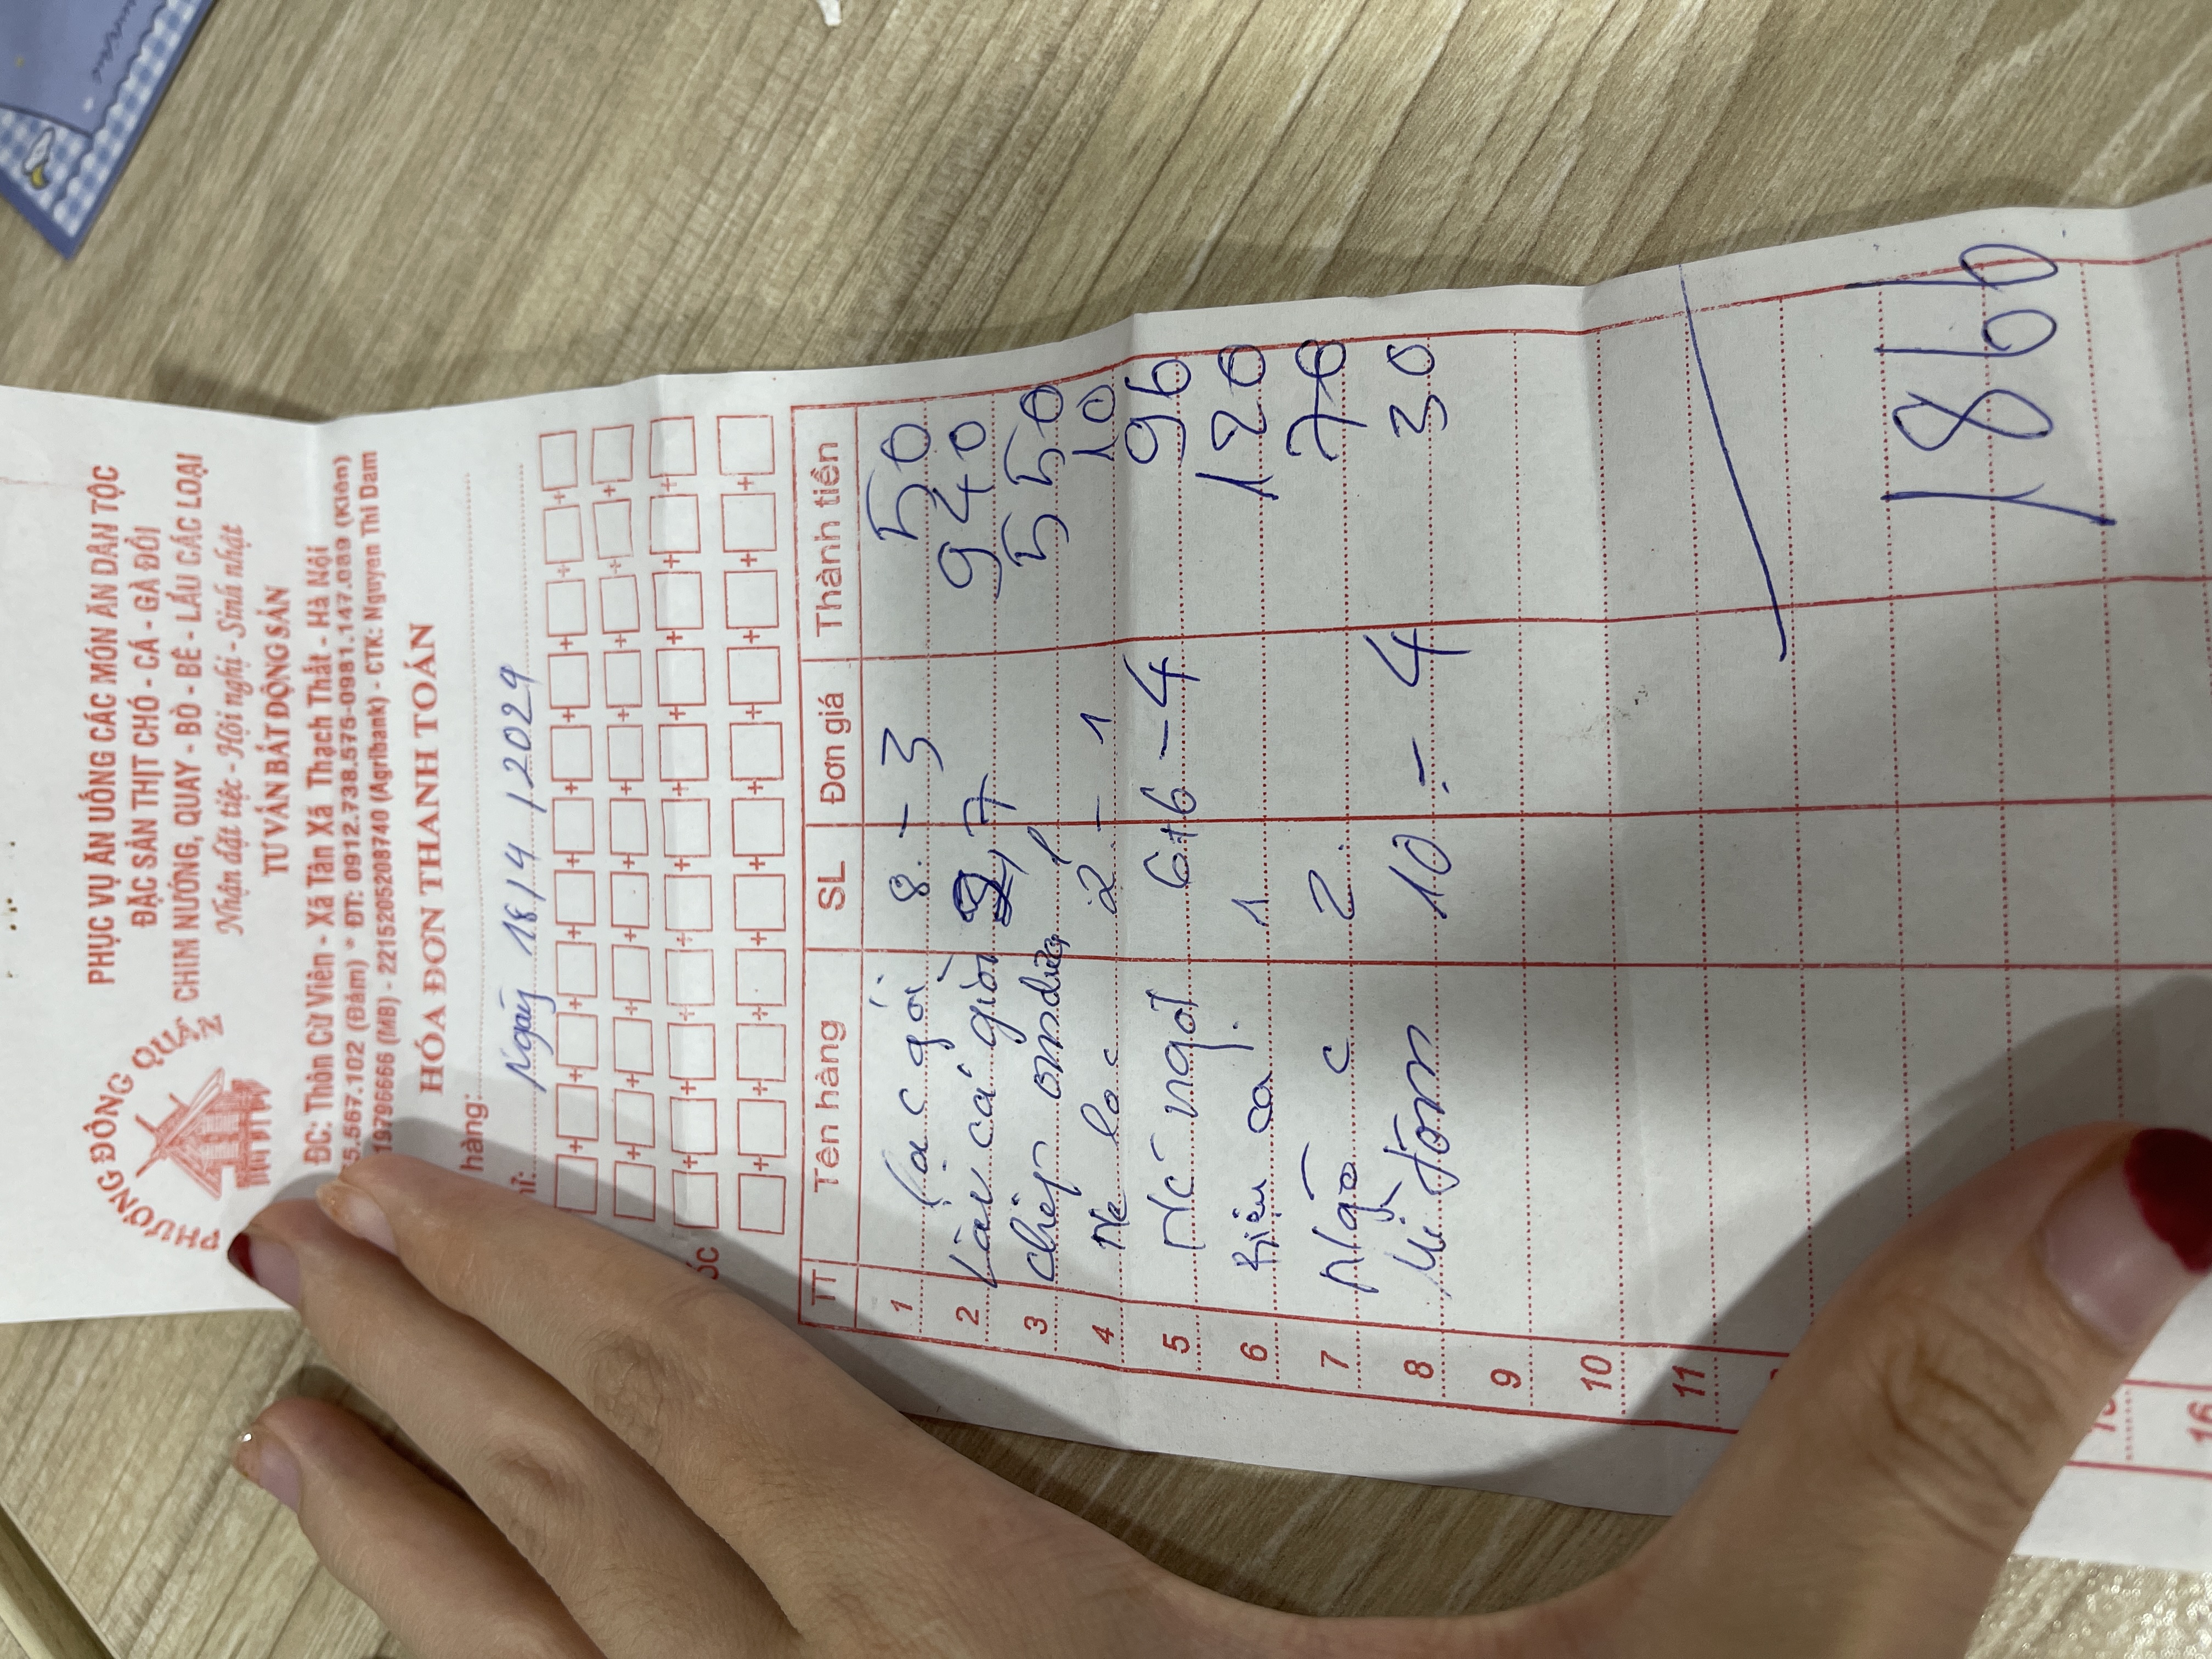 PHƯƠNG ĐÔNG QUÁN
PHỤC VỤ ĂN UỐNG CÁC MÓN ĂN DÂN TỘC
ĐẶC SẢN THỊT CHÓ - CÁ - GÀ ĐỒI
CHIM NƯỚNG, QUAY - BÒ - BÊ - LẨU CÁC LOẠI
Nhận đặt tiệc - Hội nghị - Sinh nhật
TƯ VẤN BẤT ĐỘNG SẢN
ĐC: Thôn Cừ Viên - Xã Tân Xã Thạch Thất - Hà Nội
5.567.102 (Đảm) * ĐT: 0912.738.575-0981.147.089 (Kiên)
19796666 (MB) - 2215205208740 (Agribank) - CTK: Nguyen Thi Dam
HÓA ĐƠN THANH TOÁN
hàng:
hỉ: Ngày 18/4/2024
+ + + + + + + + + +
+ + + + + + + + + +
ốc + + + + + + + + + +
+ + + + + + + + + +
TT Tên hàng SL Đơn giá Thành tiền
1 Lạc gói 8 - 3 50
2 Lẩu cá giòn 2,7 940
3 Chép om dưa 1 550
4 Nc lọc 2 - 1 10
5 Nc ngọt 6+6 - 4 96
6 Riêu cá 1 120
7 Ngô c 2 70
8 Mì tôm 10 - 4 30
9
10
11
1866
15
16